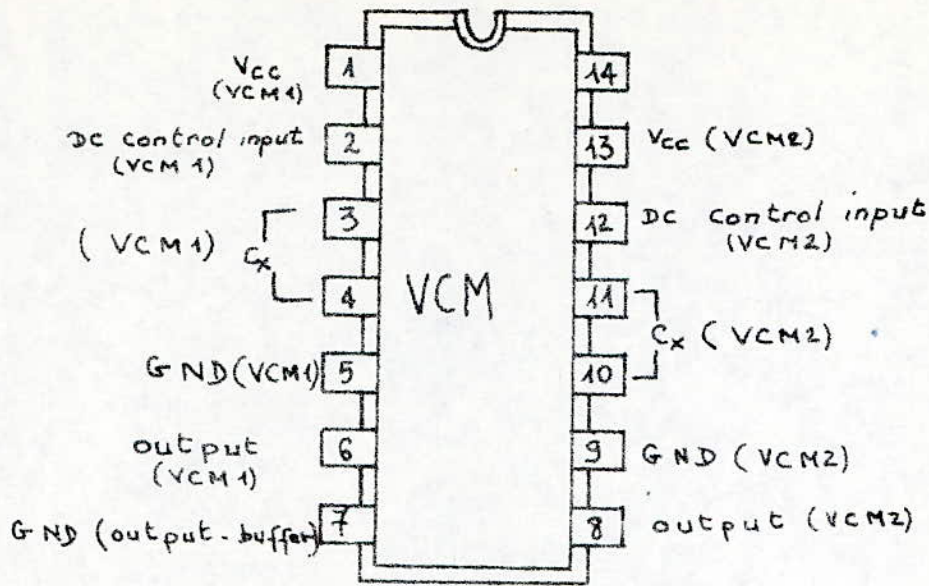 Vcc
(VCM1)
1
DC control input
(VCM 1)
2
3
(VCM1) Cx
4
GND (VCM1)
5
output
(VCM1)
6
GND (output-buffer)
7
VCM
14
13
Vcc (VCM2)
12
DC control input
(VCM2)
11
Cx (VCM2)
10
9
GND (VCM2)
8
output (VCM2)